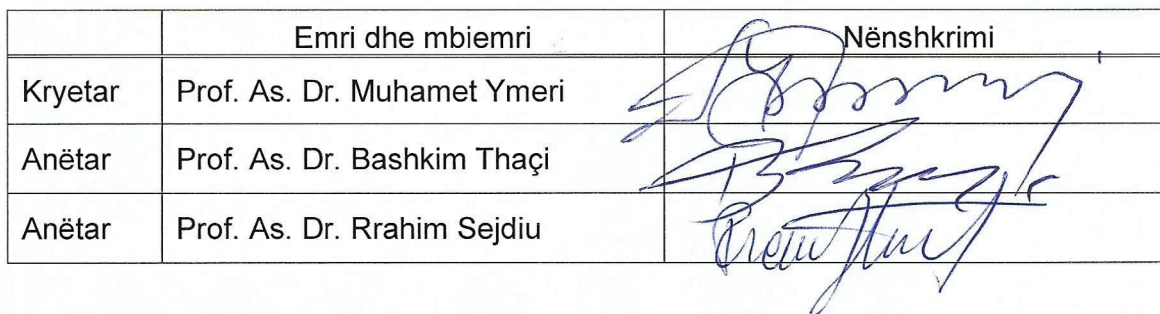 Emri dhe mbiemri Nënshkrimi
Kryetar Prof. As. Dr. Muhamet Ymeri
Anëtar Prof. As. Dr. Bashkim Thaçi
Anëtar Prof. As. Dr. Rrahim Sejdiu